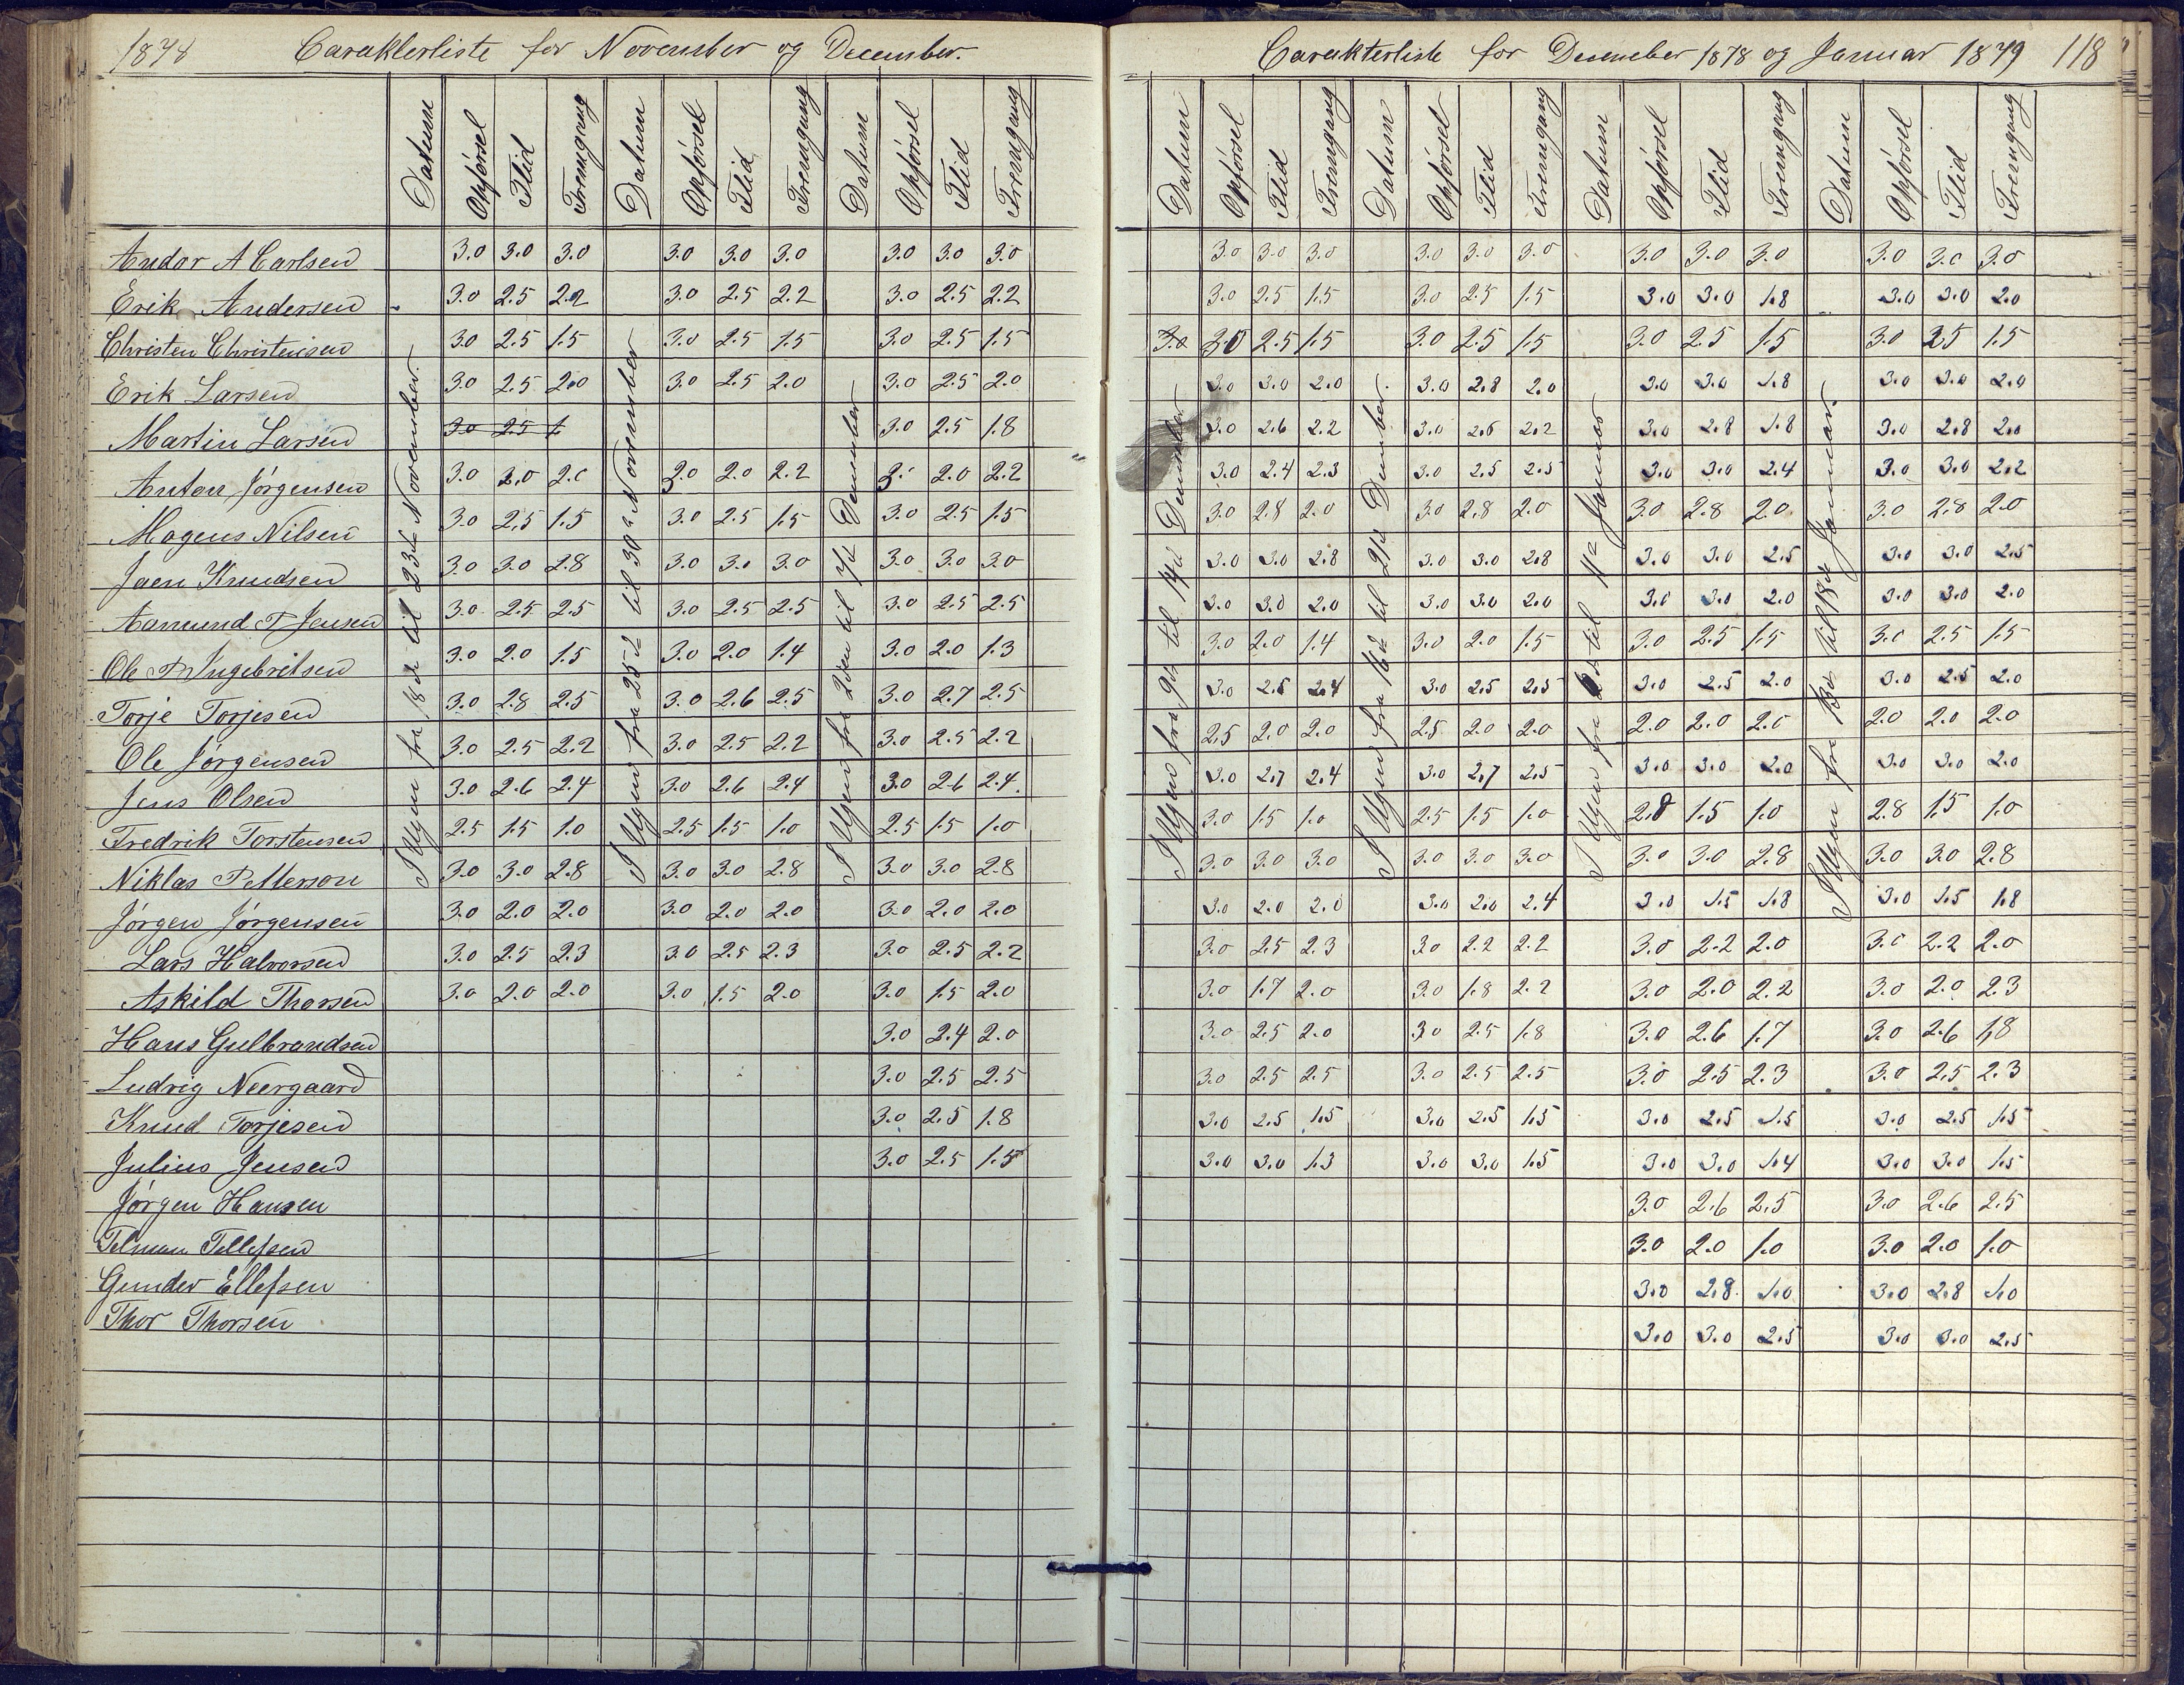 1878 Carakterliste for November og December.
Datum Opførsel Flid Fremgang Datum Opførsel Flid Fremgang Datum Opførsel Flid Fremgang
I Ugen fra 18de til 23de November.
I Ugen fra 25de til 30te November
I Ugen fra 2den til 7de December
Andor A Carlsen 3.0 3.0 3.0 3.0 3.0 3.0 3.0 3.0 3.0
Erik Andersen 3.0 2.5 2.2 3.0 2.5 2.2 3.0 2.5 2.2
Christen Christensen 3.0 2.5 1.5 3.0 2.5 1.5 3.0 2.5 1.5
Erik Larsen 3.0 2.5 2.0 3.0 2.5 2.0 3.0 2.5 2.0
Martin Larsen 3.0 2.5 1 3.0 2.5 1.8
Anton Jørgensen 3.0 2.0 2.0 3.0 2.0 2.2 3. 2.0 2.2
Mogens Nilsen 3.0 2.5 1.5 3.0 2.5 1.5 3.0 2.5 1.5
Jaen Knudsen 3.0 3.0 2.8 3.0 3.0 3.0 3.0 3.0 3.0
Aamund T Jensen 3.0 2.5 2.5 3.0 2.5 2.5 3.0 2.5 2.5
Ole P Ingebritsen 3.0 2.0 1.5 3.0 2.0 1.4 3.0 2.0 1.3
Torje Torjesen 3.0 2.8 2.5 3.0 2.6 2.5 3.0 2.7 2.5
Ole Jørgensen 3.0 2.5 2.2 3.0 2.5 2.2 3.0 2.5 2.2
Jens Olsen 3.0 2.6 2.4 3.0 2.6 2.4 3.0 2.6 2.4
Fredrik Torstensen 2.5 1.5 1.0 2.5 1.5 1.0 2.5 1.5 1.0
Niklas Petterson 3.0 3.0 2.8 3.0 3.0 2.8 3.0 3.0 2.8
Jørgen Jørgensen 3.0 2.0 2.0 3.0 2.0 2.0 3.0 2.0 2.0
Lars Halvorsen 3.0 2.5 2.3 3.0 2.5 2.3 3.0 2.5 2.2
Askild Thorsen 3.0 2.0 2.0 3.0 1.5 2.0 3.0 1.5 2.0
Hans Gulbrandsen 3.0 2.4 2.0
Ludvig Neergaard 3.0 2.5 2.5
Knud Torjesen 3.0 2.5 1.8
Julius Jensen 3.0 2.5 1.5
Jørgen Hansen
Telman Tellefsen
Gunder Ellefsen
Thor Thorsen
Carakterliste for December 1878 og Januar 1879 118
Datum Opførsel Flid Fremgang Datum Opførsel Flid Fremgang Datum Opførsel Flid Fremgang Datum Opførsel Flid Fremgang
I Ugen fra 9de til 14de December
I Ugen fra 16de til 21de December.
I Ugen fra til 11te Januar
I Ugen fra 13de til 18de Januar.
3.0 3.0 3.0 3.0 3.0 3.0 3.0 3.0 3.0 3.0 3.0 3.0
3.0 2.5 1.5 3.0 2.5 1.5 3.0 3.0 1.8 3.0 3.0 2.0
3.0 3.0 2.5 1.5 3.0 2.5 1.5 3.0 2.5 1.5 3.0 2.5 1.5
3.0 3.0 2.0 3.0 2.8 2.0 3.0 3.0 1.8 3.0 3.0 2.0
3.0 2.6 2.2 3.0 2.6 2.2 3.0 2.8 1.8 3.0 2.8 2.0
3.0 2.4 2.3 3.0 2.5 2.5 3.0 3.0 2.4 3.0 3.0 2.2
3.0 2.8 2.0 3.0 2.8 2.0 3.0 2.8 2.0 3.0 2.8 2.0
3.0 3.0 2.8 3.0 3.0 2.8 3.0 3.0 2.5 3.0 3.0 2.5
3.0 3.0 2.0 3.0 3.0 2.0 3.0 3.0 2.0 3.0 3.0 2.0
3.0 2.0 1.4 3.0 2.0 1.5 3.0 2.5 1.5 3.0 2.5 1.5
3.0 2.6 2.4 3.0 2.5 2.5 3.0 2.5 2.0 3.0 2.5 2.0
2.5 2.0 2.0 2.5 2.0 2.0 2.0 2.0 2.0 2.0 2.0 2.0
3.0 2.7 2.4 3.0 2.7 2.5 3.0 3.0 2.0 3.0 3.0 2.0
3.0 1.5 1.0 2.5 1.5 1.0 2.8 1.5 1.0 2.8 1.5 1.0
3.0 3.0 3.0 3.0 3.0 3.0 3.0 3.0 2.8 3.0 3.0 2.8
3.0 2.0 2.0 3.0 2.0 2.4 3.0 1.5 1.8 3.0 1.5 1.8
3.0 2.5 2.3 3.0 2.2 2.2 3.0 2.2 2.0 3.0 2.2 2.0
3.0 1.7 2.0 3.0 1.8 2.2 3.0 2.0 2.2 3.0 2.0 2.3
3.0 2.5 2.0 3.0 2.5 1.8 3.0 2.6 1.7 3.0 2.6 1.8
3.0 2.5 2.5 3.0 2.5 2.5 3.0 2.5 2.3 3.0 2.5 2.3
3.0 2.5 1.5 3.0 2.5 1.5 3.0 2.5 1.5 3.0 2.5 1.5
3.0 3.0 1.3 3.0 3.0 1.5 3.0 3.0 1.4 3.0 3.0 1.5
3.0 2.6 2.5 3.0 2.6 2.5
3.0 2.0 1.0 3.0 2.0 1.0
3.0 2.8 1.0 3.0 2.8 1.0
3.0 3.0 2.5 3.0 3.0 2.5